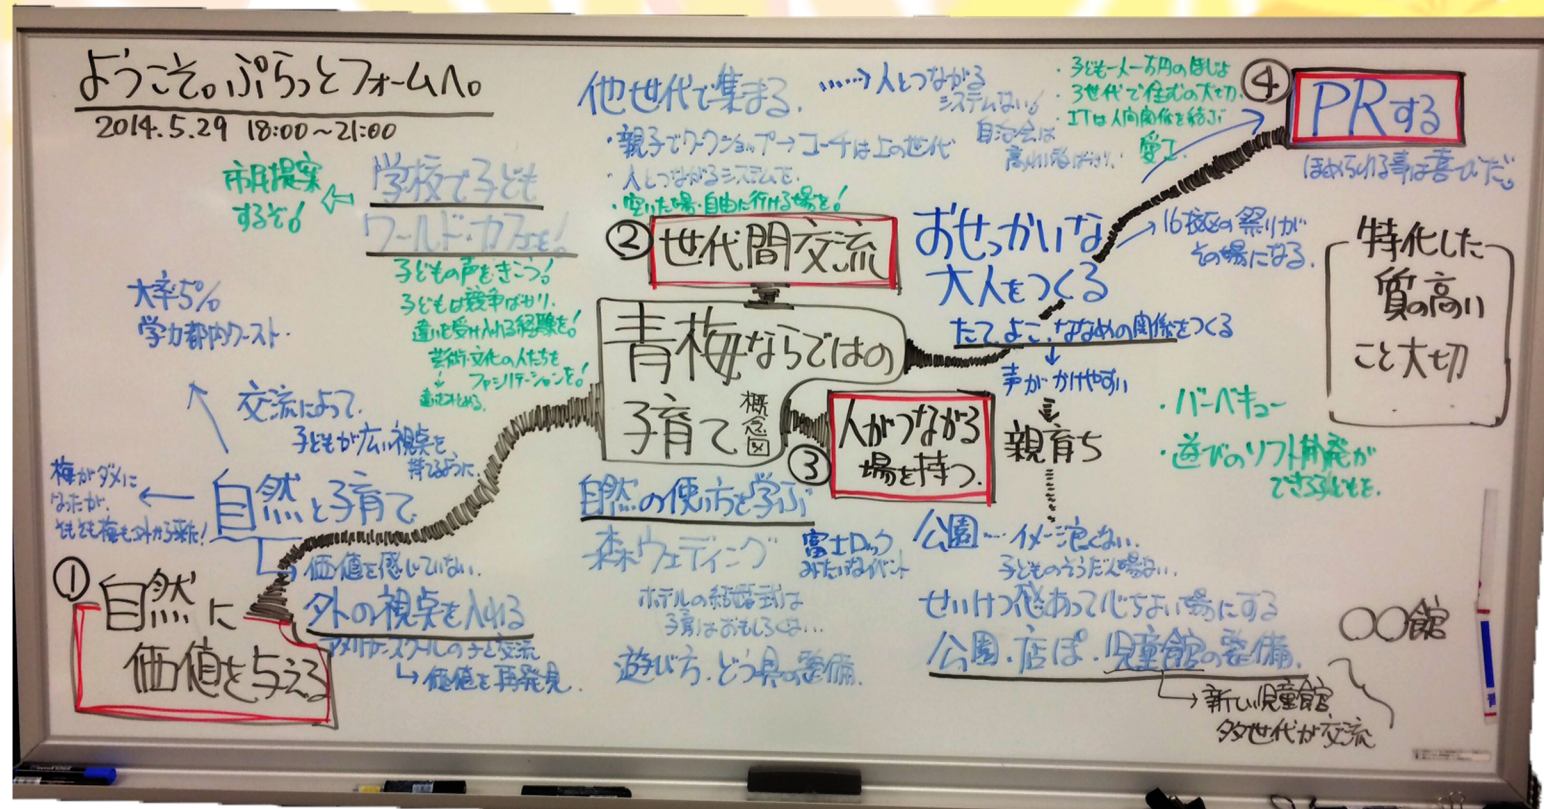 ようこそ。ぷらっとフォームへ。
2014.5.29 18:00〜21:00
市民提案
するぞ!
学校で子ども
ワールド・カフェを!
子どもの声をきこう!
子どもは競争ばかり.
違いを受け入れる経験を!
芸術・文化の人たちを
ファシリテーションを!
大卒5%
学力都内ワースト.
交流によって.
子どもが広い視点を
持てるように.
梅がダメに
なったが.
そもそも梅も外から来た!
自然と子育て
価値を感じていない.
① 自然に
価値を与える
外の視点を入れる
アメリカンスクールの子と交流
↳価値を再発見.
他世代で集まる.
‥‥→人とつながる
システムない!
自治会は
・親子でワークショップ→コーチは上の世代
・人とつながるシステムを.
・空いた場・自由に行ける場を!
② 世代間交流
青梅ならではの
子育て 概念図
③ 人がつながる
場を持つ.
自然の使い方を学ぶ
森ウェディング
富士ロック
みたいなイベント
ホテルの結婚式は
子育はおもしろくない…
遊び方.どう具の整備.
・子ども一人一万円のほじょ
・3世代で住むの大切.
・ITは人間関係を結ぶ
④ PRする
ほめられる事は喜びだ。
おせっかいな
大人をつくる
→16校区の祭りが
その場になる.
たて.よこ.ななめの関係をつくる
声がかけやすい
親育ち
特化した
質の高い
こと大切
・バーベキュー
・遊びのソフト開発が
できる子どもを.
公園…イメージ良くない.
子どものそうだん場ない.
せいけつ感あって心ちよい場にする
公園.店ぽ.児童館の整備.
→新しい児童館
多世代が交流
○○館